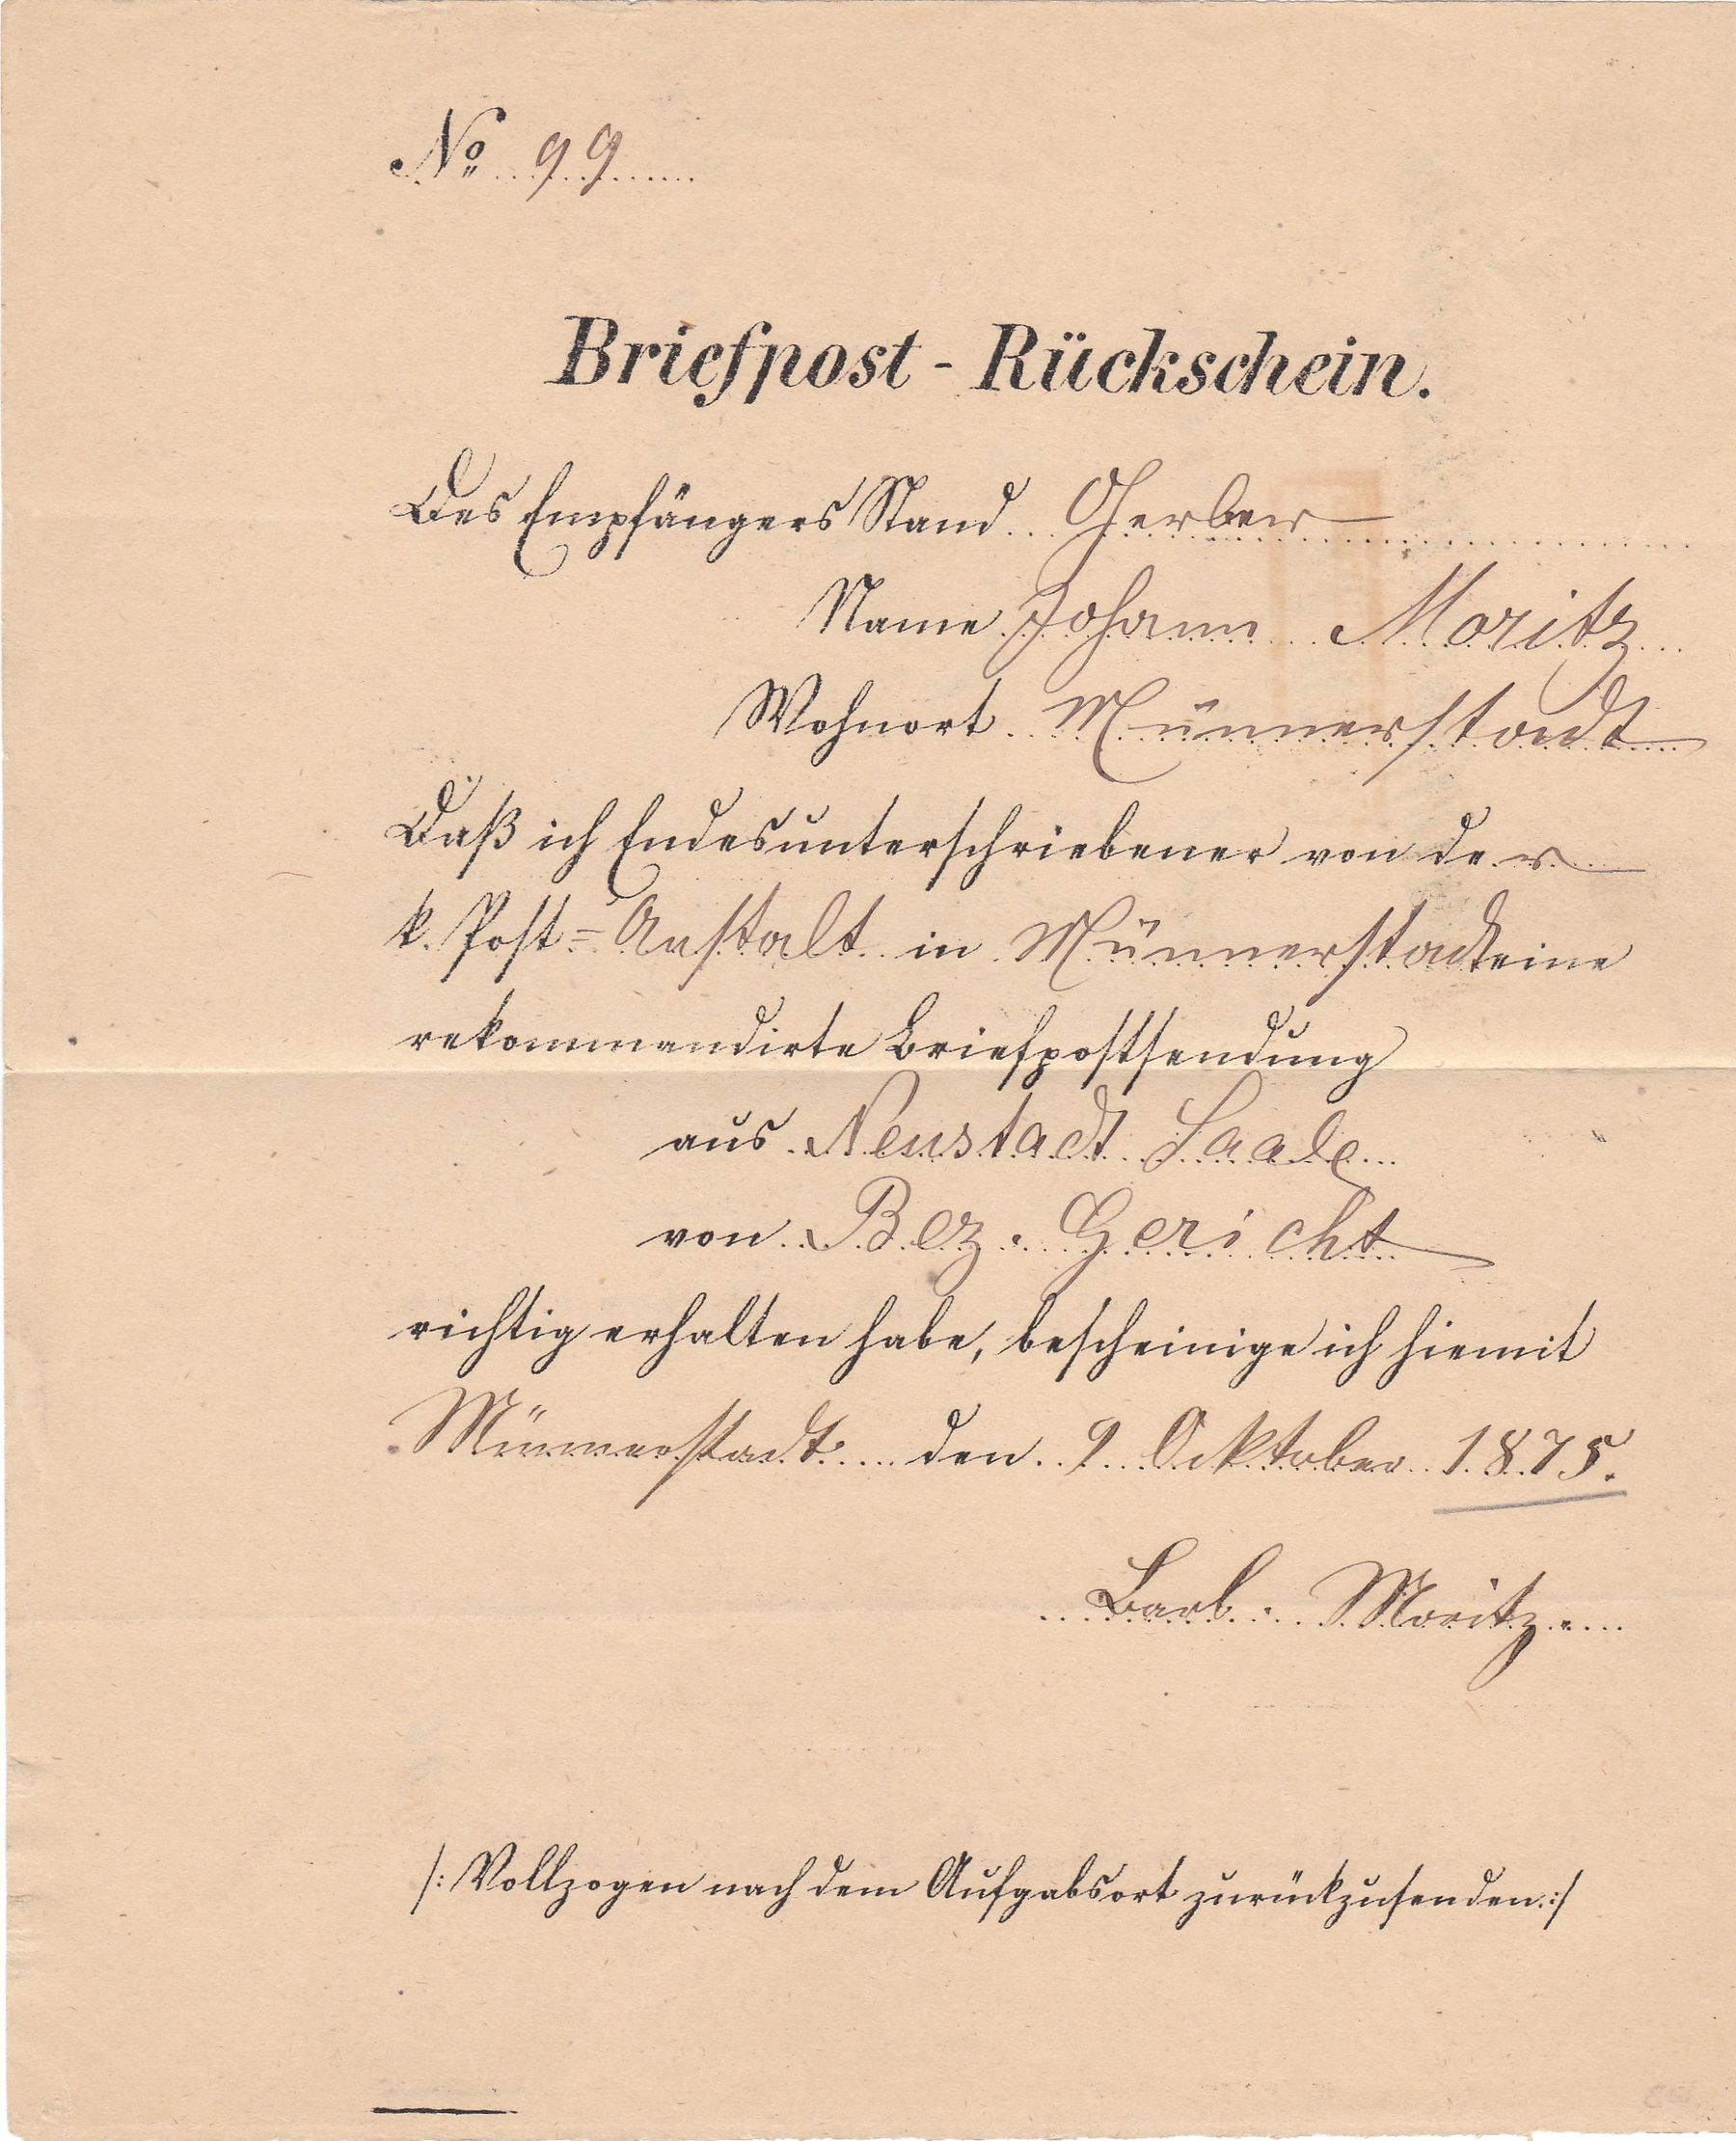 No 99
Briefpost - Rückschein.
Des Empfängers Stand Gerber
Name Johann Moritz
Wohnort Münnerstadt
Daß ich Endesunterschriebener von der
k. Post=Anstalt in Münnerstadt eine
rekommandirte Briefpostsendung
aus Neustadt Saale
von Bez. Gericht
richtig erhalten habe, bescheinige ich hiemit
Münnerstadt den 9 Ocktober 1875.
Barb. Moritz.
/: Vollzogen nach dem Aufgabsort zurückzusenden :/